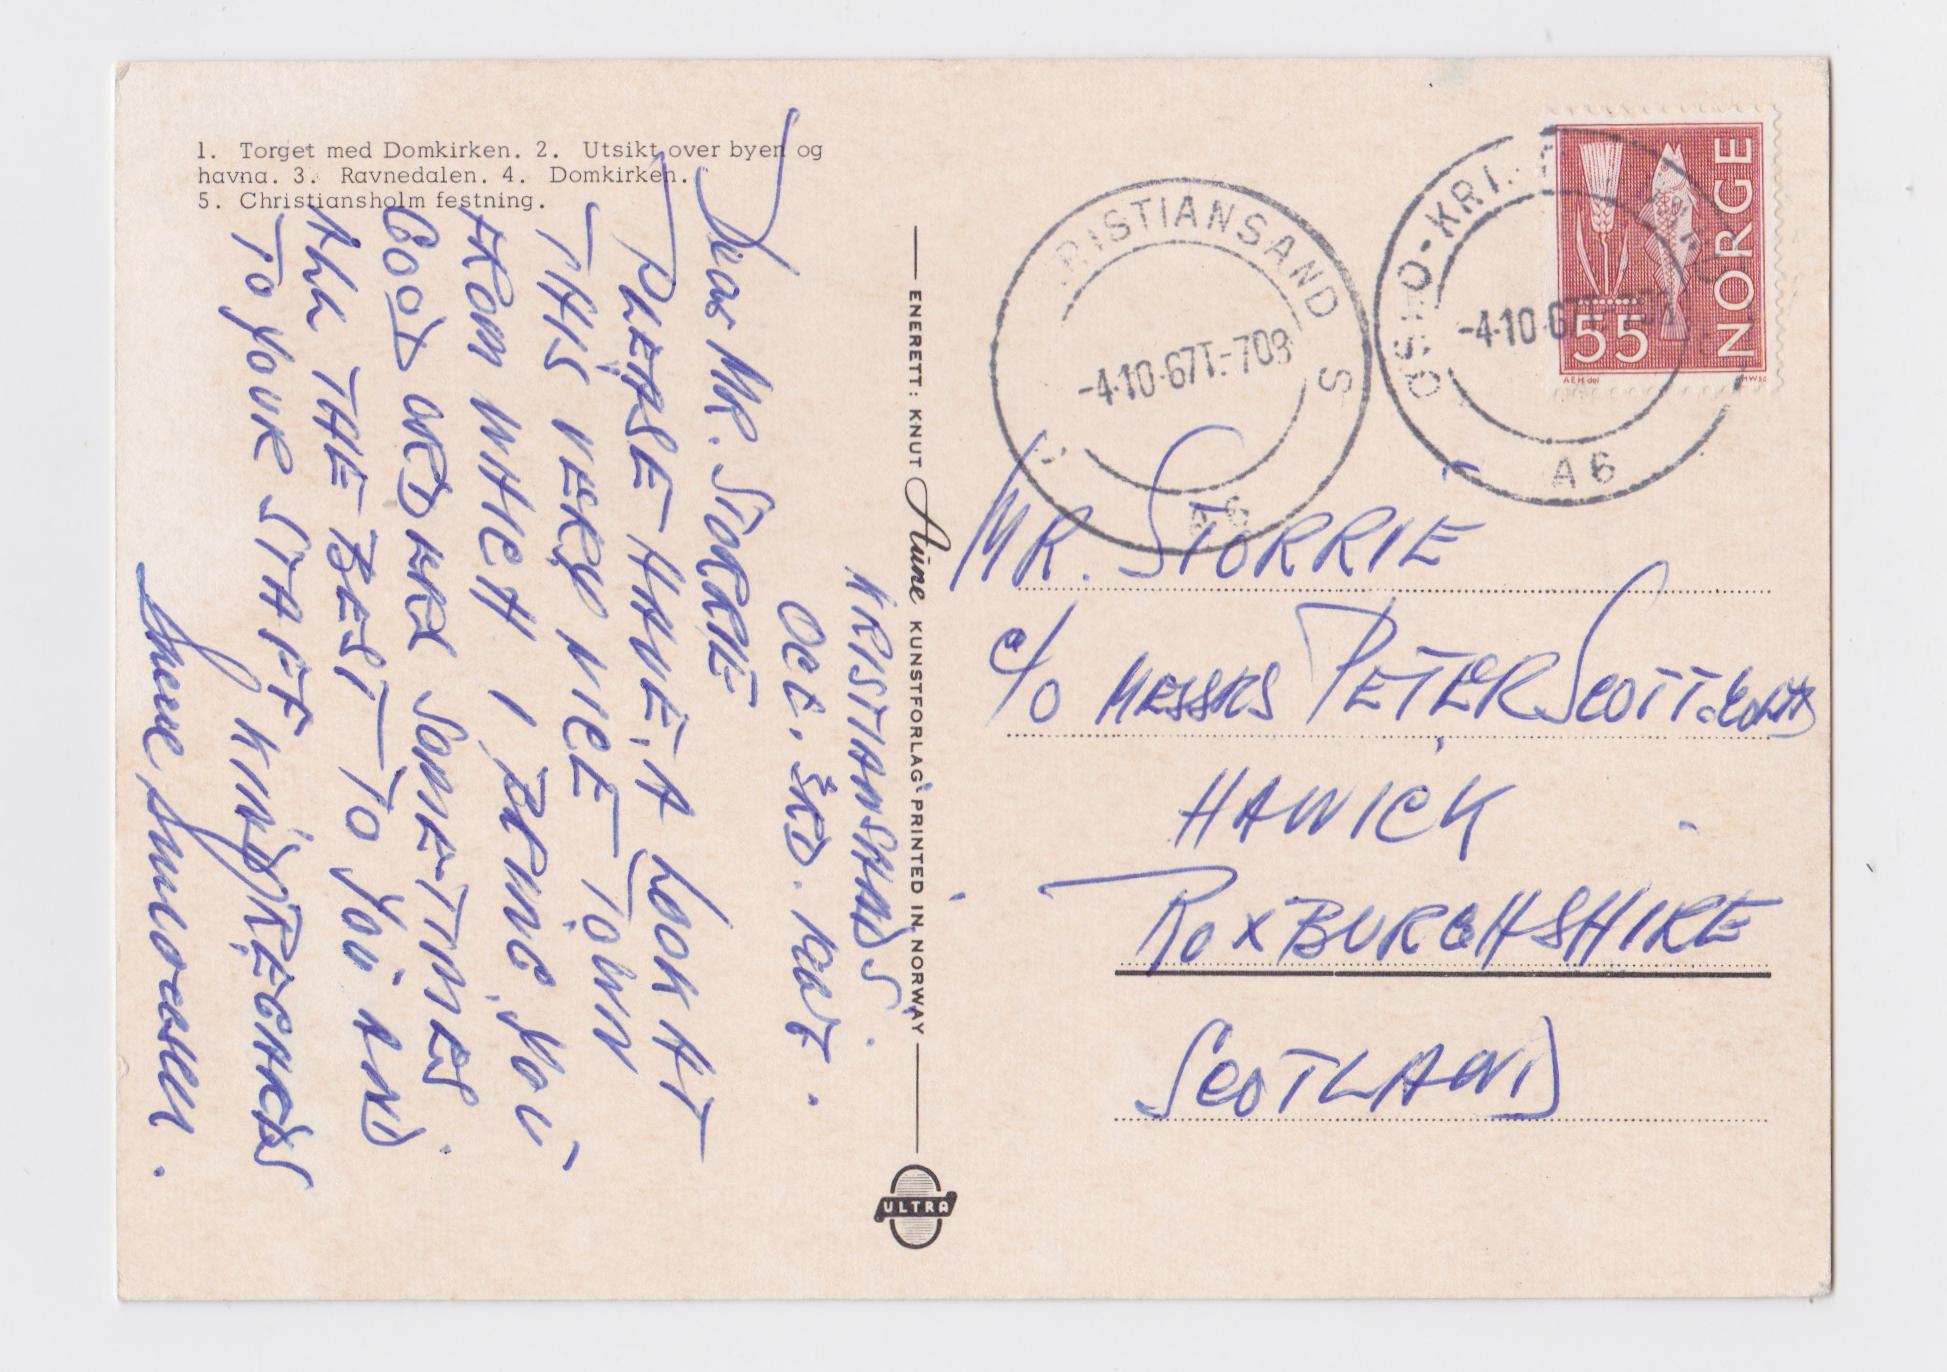 1. Torget med Domkirken. 2. Utsikt over byen og
havna. 3. Ravnedalen. 4. Domkirken.
5. Christiansholm festning.
KRISTIANSANDS.
OCT. 3RD. 1967.
Dear MR. STORRIE
PLEASE HAVE A LOOK AT
THIS VERY NICE TOWN
FROM WHICH I BRING YOU
GOOD ORDERS SOMETIMES.
ALL THE BEST TO YOU AND
TO YOUR STAFF KIND REGARDS
ENERETT: KNUT Aune KUNSTFORLAG PRINTED IN NORWAY
ULTRA
RISTIANSAND S
-4.10.67T.-708
A6
OSLO-KRI
-4.10.67T
A6
NORGE
55
AEH del
HWsc
MR. STORRIE
c/o MESSRS PETER SCOTT & CO LTD
HAWICK
ROXBURGHSHIRE
SCOTLAND